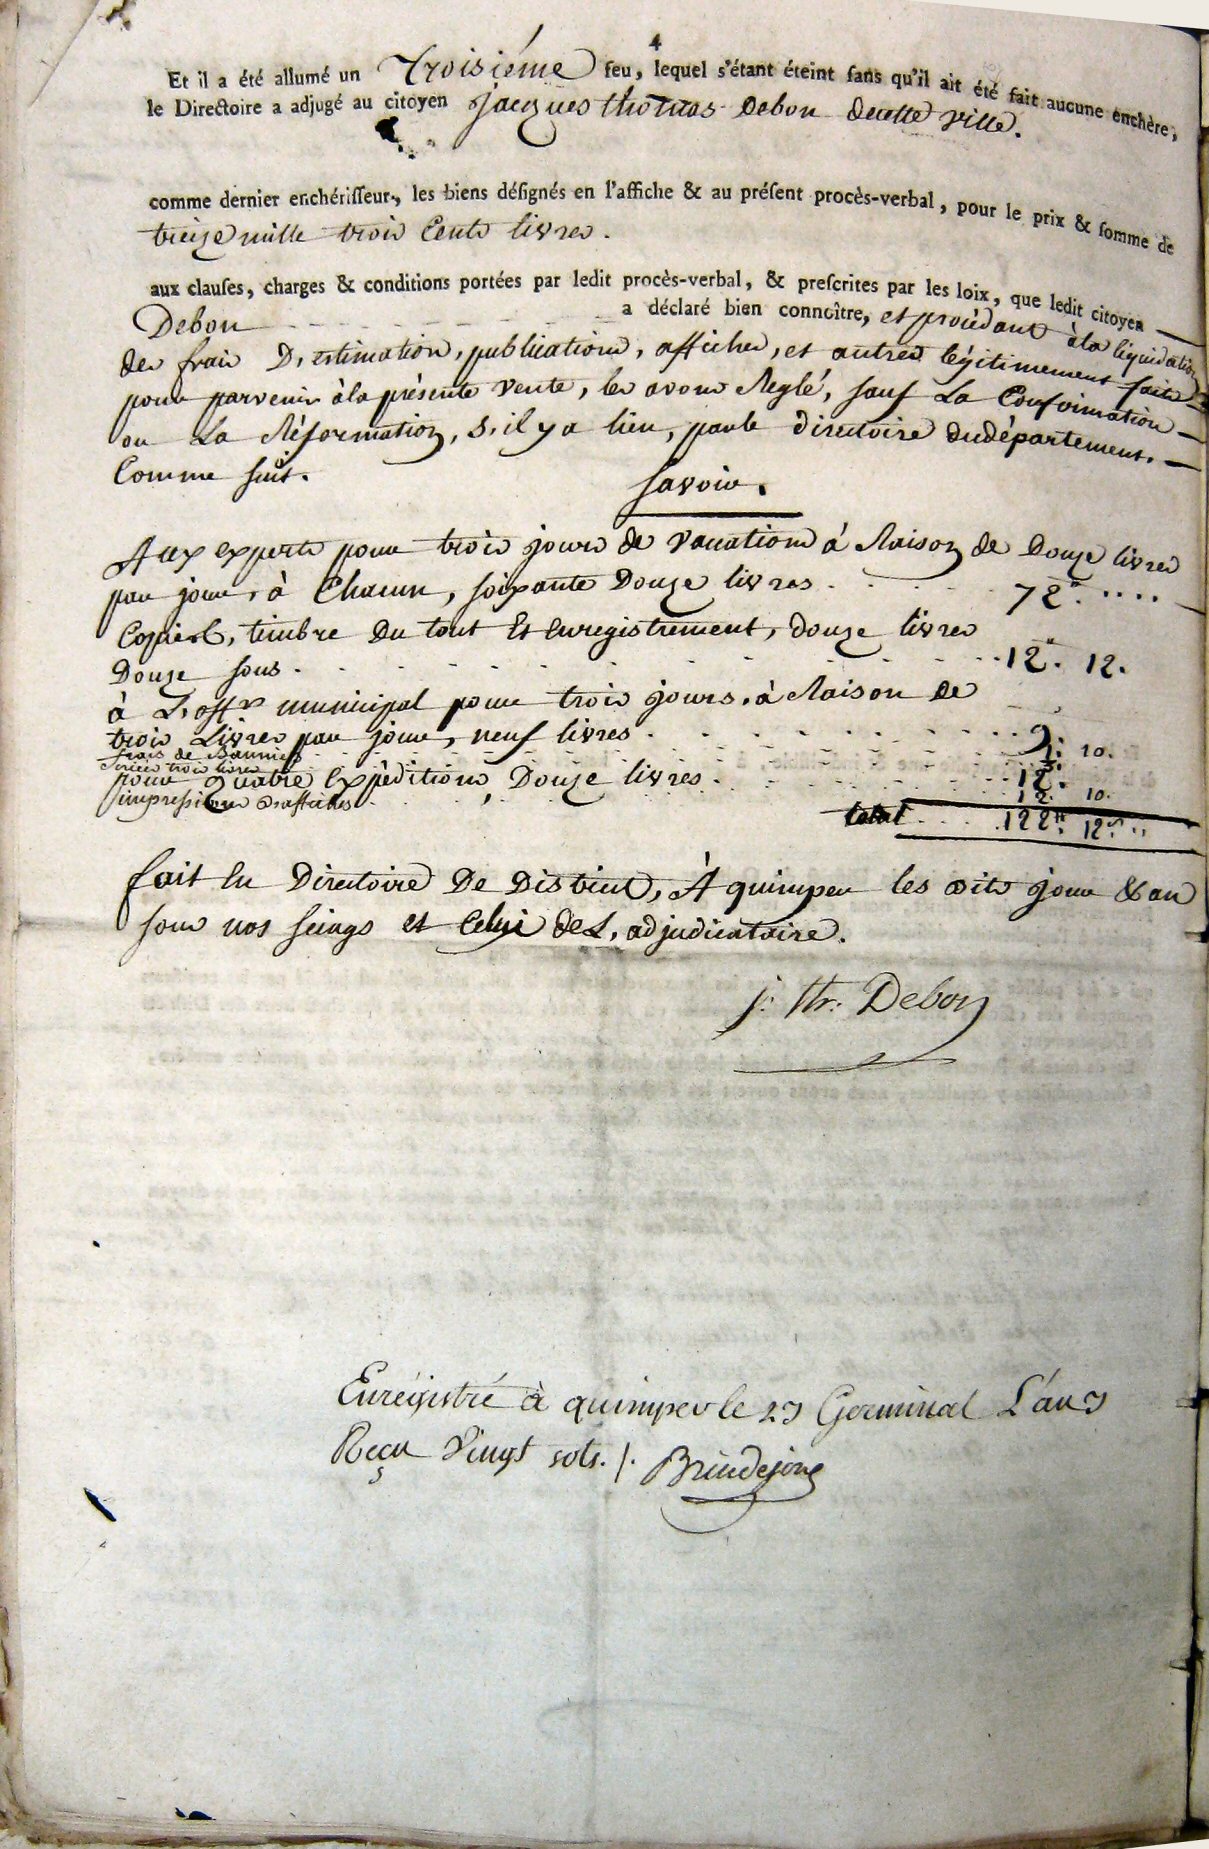 4
Et il a été allumé un troisiéme feu, lequel s'étant éteint sans qu'il ait été fait aucune enchère,
le Directoire a adjugé au citoyen jacques thomas Debon decette ville.
comme dernier enchérisseur, les biens désignés en l'affiche & au présent procès-verbal, pour le prix & somme de
treize mille trois Cents livres.
aux clauses, charges & conditions portées par ledit procès-verbal, & prescrites par les loix, que ledit citoyen
Debon a déclaré bien connoître, et procèdant àla liquidation
des frais D'estimation, publications, affiches, et autres légitimement faits
pour parvenir àla présente vente, les avons Reglé, sauf La Confirmation
ou La Réformation, s'il y a lieu, parle directoire dudépartement.
Comme suit.
savoir.
Aux experts pour trois jours de vacations à Raison de Douze livres
par jour, à Chacun, soixante Douze livres . . . 72# . . . .
Copies, timbre Du tout Et enregistrement, douze livres
Douze sous . . . . 12# 12.
à L'offr municipal pour trois jours, à Raison de
trois Livres par jour, neuf livres . . . . 9.
frais de Bannies
pour Quatre Expéditions, Douze livres . . . 12.
impression d'affiches . . . 12. 10.
total . . . 122# 12s
fait En Directoire De District, À quimper les dits jour & an
sous nos seings et Celui de L'adjudicataire.
j. th. Debon
Enrégistré à quimper le 23 Germinal L'an 3
Reçu Vingt sols. /. Brindejonc